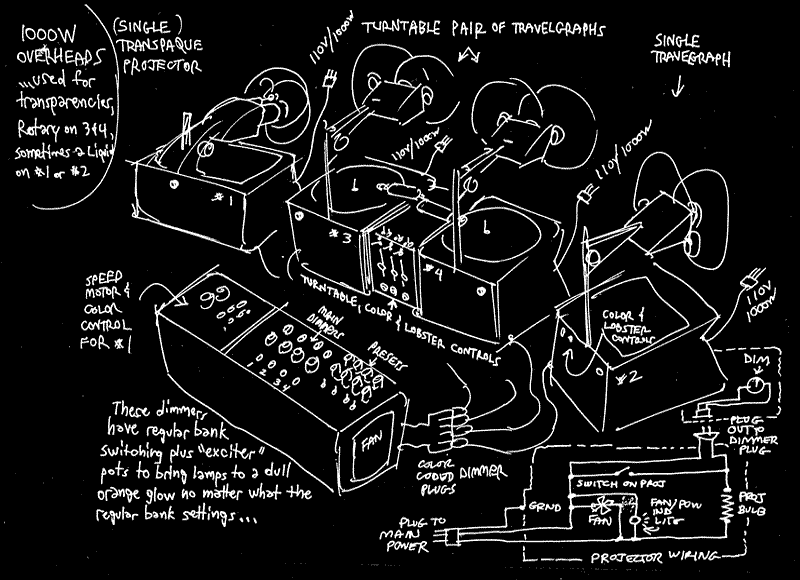 1000W
OVERHEADS
...used for
transparencies,
Rotary on 3+4,
sometimes a Liquid
on #1 or #2
(SINGLE)
TRANSPAQUE
PROJECTOR
TURNTABLE PAIR OF TRAVELGRAPHS
SINGLE
TRAVEGRAPH
110V/1000W
110V/1000W
110V/1000W
110V
1000W
#1
#3
#4
#2
TURNTABLE, COLOR & LOBSTER CONTROLS
COLOR &
LOBSTER
CONTROLS
SPEED
MOTOR &
COLOR
CONTROL
FOR #1
MAIN
DIMMERS
PRESETS
1 2 3 4
FAN
COLOR
CODED
PLUGS
DIMMER
These dimmers
have regular bank
switching plus "exciter"
pots to bring lamps to a dull
orange glow no matter what the
regular bank settings...
DIM
PLUG
OUT TO
DIMMER
PLUG
SWITCH ON PROJ
GRND
FAN
FAN/POW
IND
LITE
PROJ
BULB
PLUG TO
MAIN
POWER
PROJECTOR WIRING